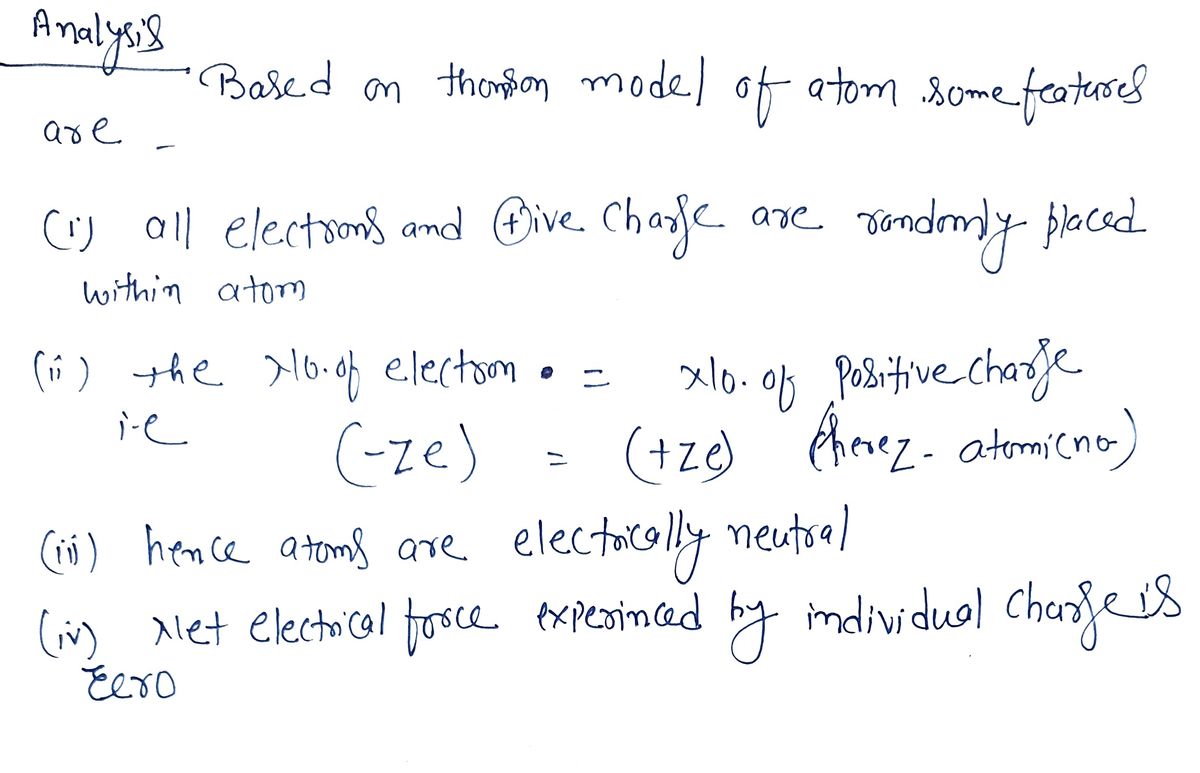 Analysis
Based on thomson model of atom some features
are -
(i) all electrons and (+)ive Charge are randomly placed
within atom
(ii) the No. of electron • = No. of Positive charge
i-e (-ze) = (+ze) (here z - atomic no)
(iii) hence atoms are electrically neutral
(iv) Net electrical force experinced by individual charge is
Zero